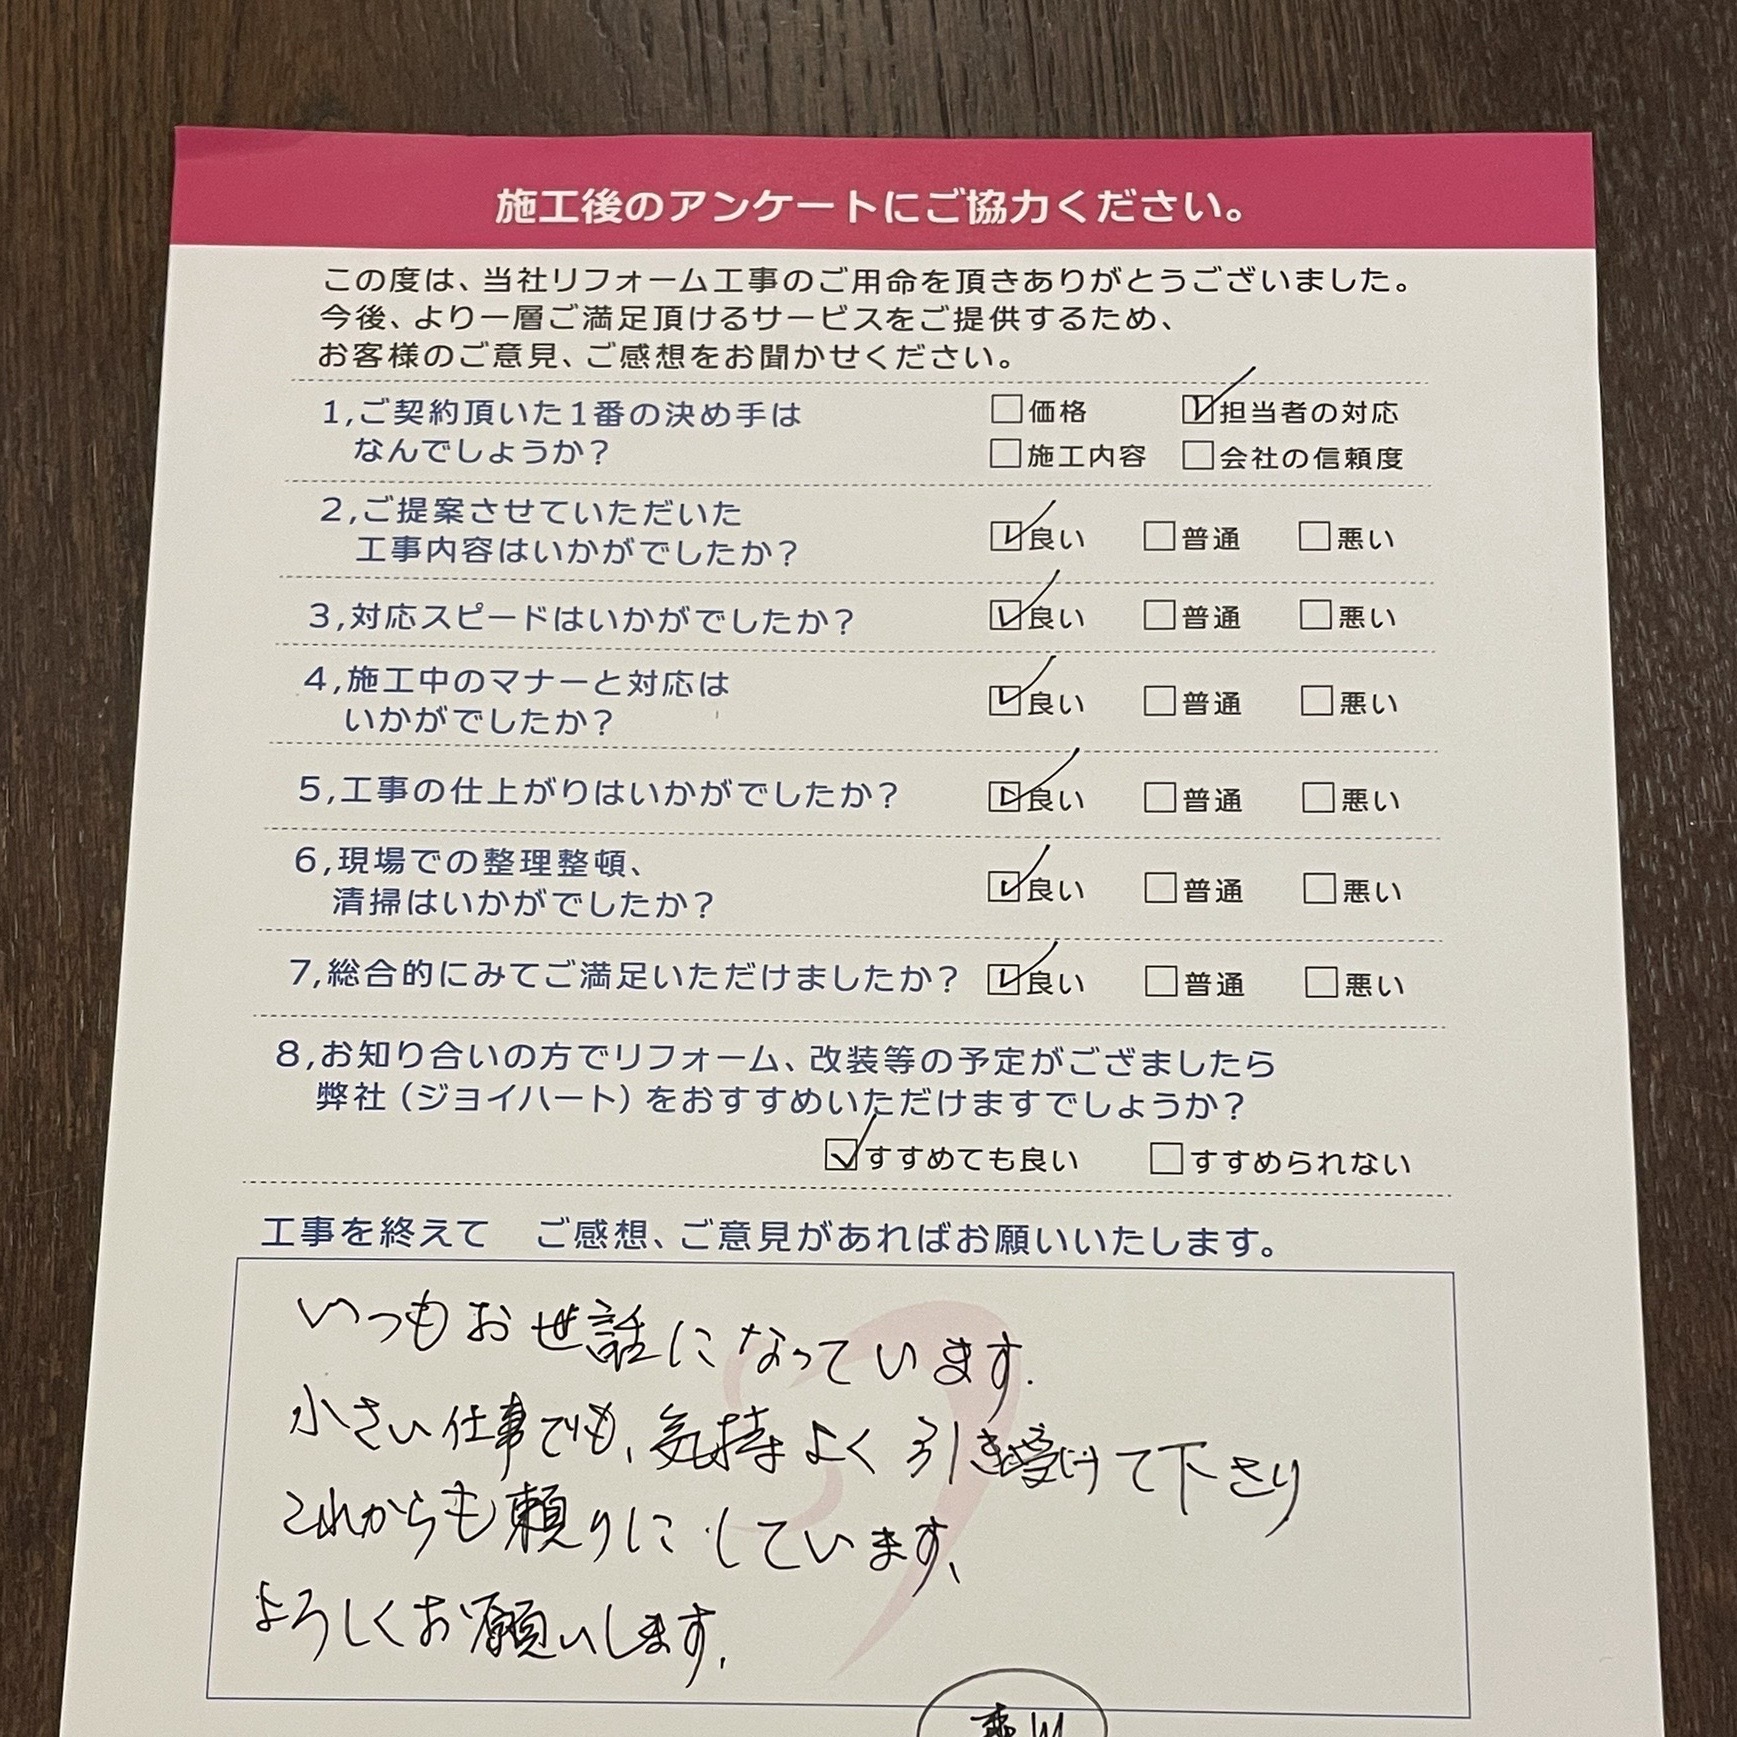 施工後のアンケートにご協力ください。
この度は、当社リフォーム工事のご用命を頂きありがとうございました。
今後、より一層ご満足頂けるサービスをご提供するため、
お客様のご意見、ご感想をお聞かせください。
1,ご契約頂いた1番の決め手は
なんでしょうか?
価格 担当者の対応
施工内容 会社の信頼度
2,ご提案させていただいた
工事内容はいかがでしたか?
良い 普通 悪い
3,対応スピードはいかがでしたか? 良い 普通 悪い
4,施工中のマナーと対応は
いかがでしたか?
良い 普通 悪い
5,工事の仕上がりはいかがでしたか? 良い 普通 悪い
6,現場での整理整頓、
清掃はいかがでしたか?
良い 普通 悪い
7,総合的にみてご満足いただけましたか? 良い 普通 悪い
8,お知り合いの方でリフォーム、改装等の予定がござましたら
弊社(ジョイハート)をおすすめいただけますでしょうか?
すすめても良い すすめられない
工事を終えて ご感想、ご意見があればお願いいたします。
いつもお世話になっています.
小さい仕事でも、気持よく引き受けて下さり
これからも頼りにしています、
よろしくお願いします.